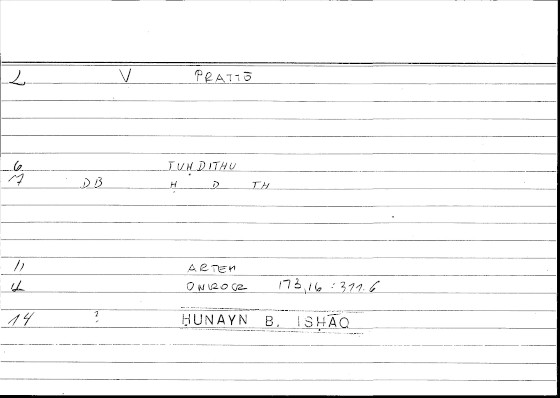 2 V PRATTŌ
6 TUḤDITHU
7 DB Ḥ D TH
11 ARTEM
12 ONIROCR 173,16 : 311.6
14 ? ḤUNAYN B. ISḤĀQ